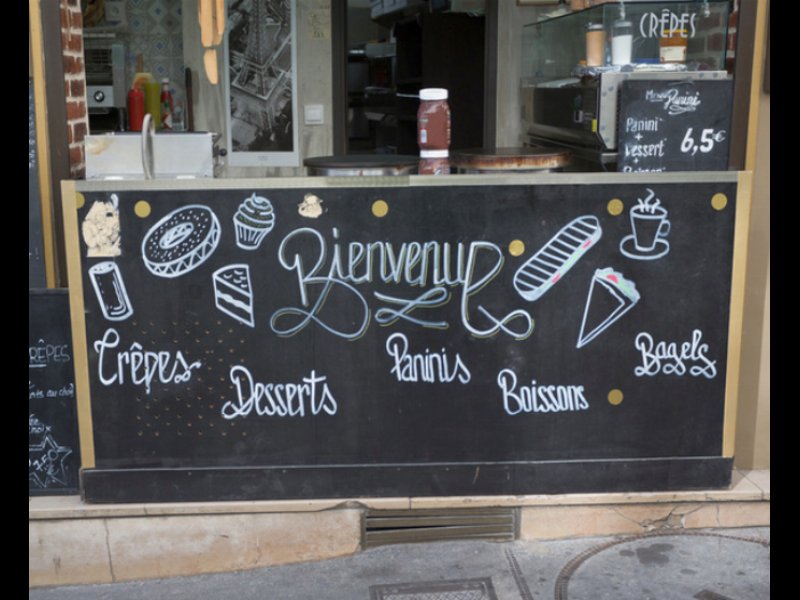 CRÊPES
Menu
Panini
Panini
+
Dessert
6,5€
Bienvenue
Crêpes
Desserts
Paninis
Boissons
Bagels
RÊPES